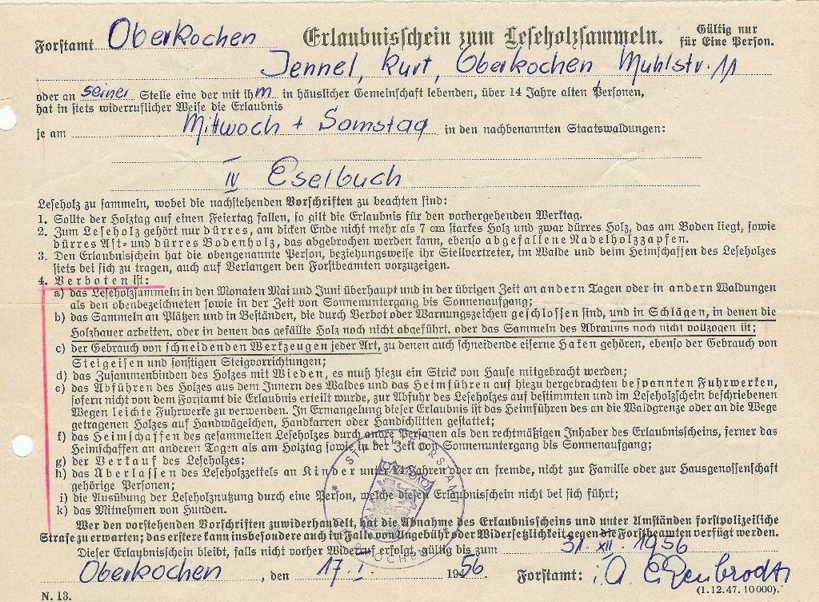 Forstamt Oberkochen Erlaubnisschein zum Leseholzsammeln. Gültig nur für Eine Person.
Jennel, Kurt, Oberkochen, Muhlstr. 11
oder an seiner Stelle eine der mit ihm in häuslicher Gemeinschaft lebenden, über 14 Jahre alten Personen,
hat in stets widerruflicher Weise die Erlaubnis
je am Mittwoch + Samstag in den nachbenannten Staatswaldungen:
IV Eselbuch
Leseholz zu sammeln, wobei die nachstehenden Vorschriften zu beachten sind:
1. Sollte der Holztag auf einen Feiertag fallen, so gilt die Erlaubnis für den vorhergehenden Werktag.
2. Zum Leseholz gehört nur dürres, am dicken Ende nicht mehr als 7 cm starkes Holz und zwar dürres Holz, das am Boden liegt, sowie
dürres Ast- und dürres Bodenholz, das abgebrochen werden kann, ebenso abgefallene Nadelholzzapfen.
3. Den Erlaubnisschein hat die obengenannte Person, beziehungsweise ihr Stellvertreter, im Walde und beim Heimschaffen des Leseholzes
stets bei sich zu tragen, auch auf Verlangen den Forstbeamten vorzuzeigen.
4. Verboten ist:
a) das Leseholzsammeln in den Monaten Mai und Juni überhaupt und in der übrigen Zeit an andern Tagen oder in andern Waldungen
als den obenbezeichneten sowie in der Zeit von Sonnenuntergang bis Sonnenaufgang;
b) das Sammeln an Plätzen und in Beständen, die durch Verbot oder Warnungszeichen geschlossen sind, und in Schlägen, in denen die
Holzhauer arbeiten, oder in denen das gefällte Holz noch nicht abgeführt, oder das Sammeln des Abraums noch nicht vollzogen ist;
c) der Gebrauch von schneidenden Werkzeugen jeder Art, zu denen auch schneidende eiserne Haken gehören, ebenso der Gebrauch von
Steigeisen und sonstigen Steigvorrichtungen;
d) das Zusammenbinden des Holzes mit Wieden, es muß hiezu ein Strick von Hause mitgebracht werden;
e) das Abführen des Holzes aus dem Innern des Waldes und das Heimführen auf hiezu hergebrachten bespannten Fuhrwerken,
sofern nicht von dem Forstamt die Erlaubnis erteilt wurde, zur Abfuhr des Leseholzes auf bestimmten und im Leseholzschein beschriebenen
Wegen leichte Fuhrwerke zu verwenden. In Ermangelung dieser Erlaubnis ist das Heimführen des an die Waldgrenze oder an die Wege
getragenen Holzes auf Handwägelchen, Handkarren oder Handschlitten gestattet;
f) das Heimschaffen des gesammelten Leseholzes durch andre Personen als den rechtmäßigen Inhaber des Erlaubnisscheins, ferner das
Heimschaffen an anderen Tagen als am Holztag sowie in der Zeit von Sonnenuntergang bis Sonnenaufgang;
g) der Verkauf des Leseholzes;
h) das Überlassen des Leseholzzettels an Kinder unter 14 Jahren oder an fremde, nicht zur Familie oder zur Hausgenossenschaft
gehörige Personen;
i) die Ausübung der Leseholznutzung durch eine Person, welche diesen Erlaubnisschein nicht bei sich führt;
k) das Mitnehmen von Hunden.
Wer den vorstehenden Vorschriften zuwiderhandelt, hat die Abnahme des Erlaubnisscheins und unter Umständen forstpolizeiliche
Strafe zu erwarten; das erstere kann insbesondere auch im Falle von Ungebühr oder Widersetzlichkeit gegen die Forstbeamten verfügt werden.
Dieser Erlaubnisschein bleibt, falls nicht vorher Widerruf erfolgt, gültig bis zum 31. XII. 1956
Oberkochen, den 17. I. 1956 Forstamt: i. A.
N. 13. (1.12.47. 10000).